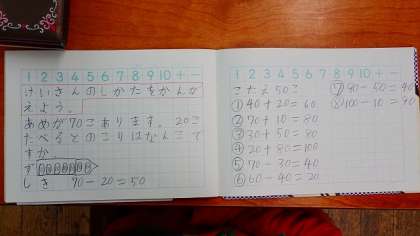 1 2 3 4 5 6 7 8 9 10 + −
けいさんのしかたをかんが
えよう。
あめが70こあります。20こ
たべるとのこりはなんこで
すか
ず
しき 70−20=50
1 2 3 4 5 6 7 8 9 10 + −
こたえ50こ
①40+20=60
②70+10=80
③30+50=80
④20+80=100
⑤70−30=40
⑥60−40=20
⑦90−50=40
⑧100−10=90